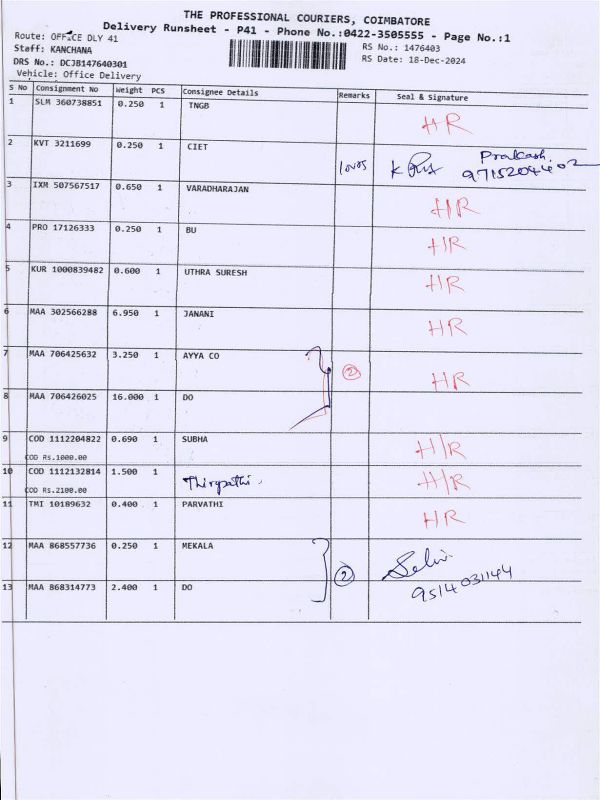 THE PROFESSIONAL COURIERS, COIMBATORE
Delivery Runsheet - P41 - Phone No.:0422-3505555 - Page No.:1
Route: OFFICE DLY 41
RS No.: 1476403
Staff: KANCHANA
RS Date: 18-Dec-2024
DRS No.: DCJB147640301
Vehicle: Office Delivery
S No Consignment No Weight PCS Consignee Details Remarks Seal & Signature
1 SLM 360738851 0.250 1 TNGB HR
2 KVT 3211699 0.250 1 CIET Prakash
3 IXM 507567517 0.650 1 VARADHARAJAN HR
4 PRO 17126333 0.250 1 BU HR
5 KUR 1000839482 0.600 1 UTHRA SURESH HR
6 MAA 302566288 6.950 1 JANANI HR
7 MAA 706425632 3.250 1 AYYA CO 2 HR
8 MAA 706426025 16.000 1 DO
9 COD 1112204822 0.690 1 SUBHA H/R
COD RS.1000.00
10 COD 1112132814 1.500 1 Thirypathi. H/R
COD RS.2100.00
11 TMI 10189632 0.400 1 PARVATHI HR
12 MAA 868557736 0.250 1 MEKALA 2 Selvi
9514031144
13 MAA 868314773 2.400 1 DO